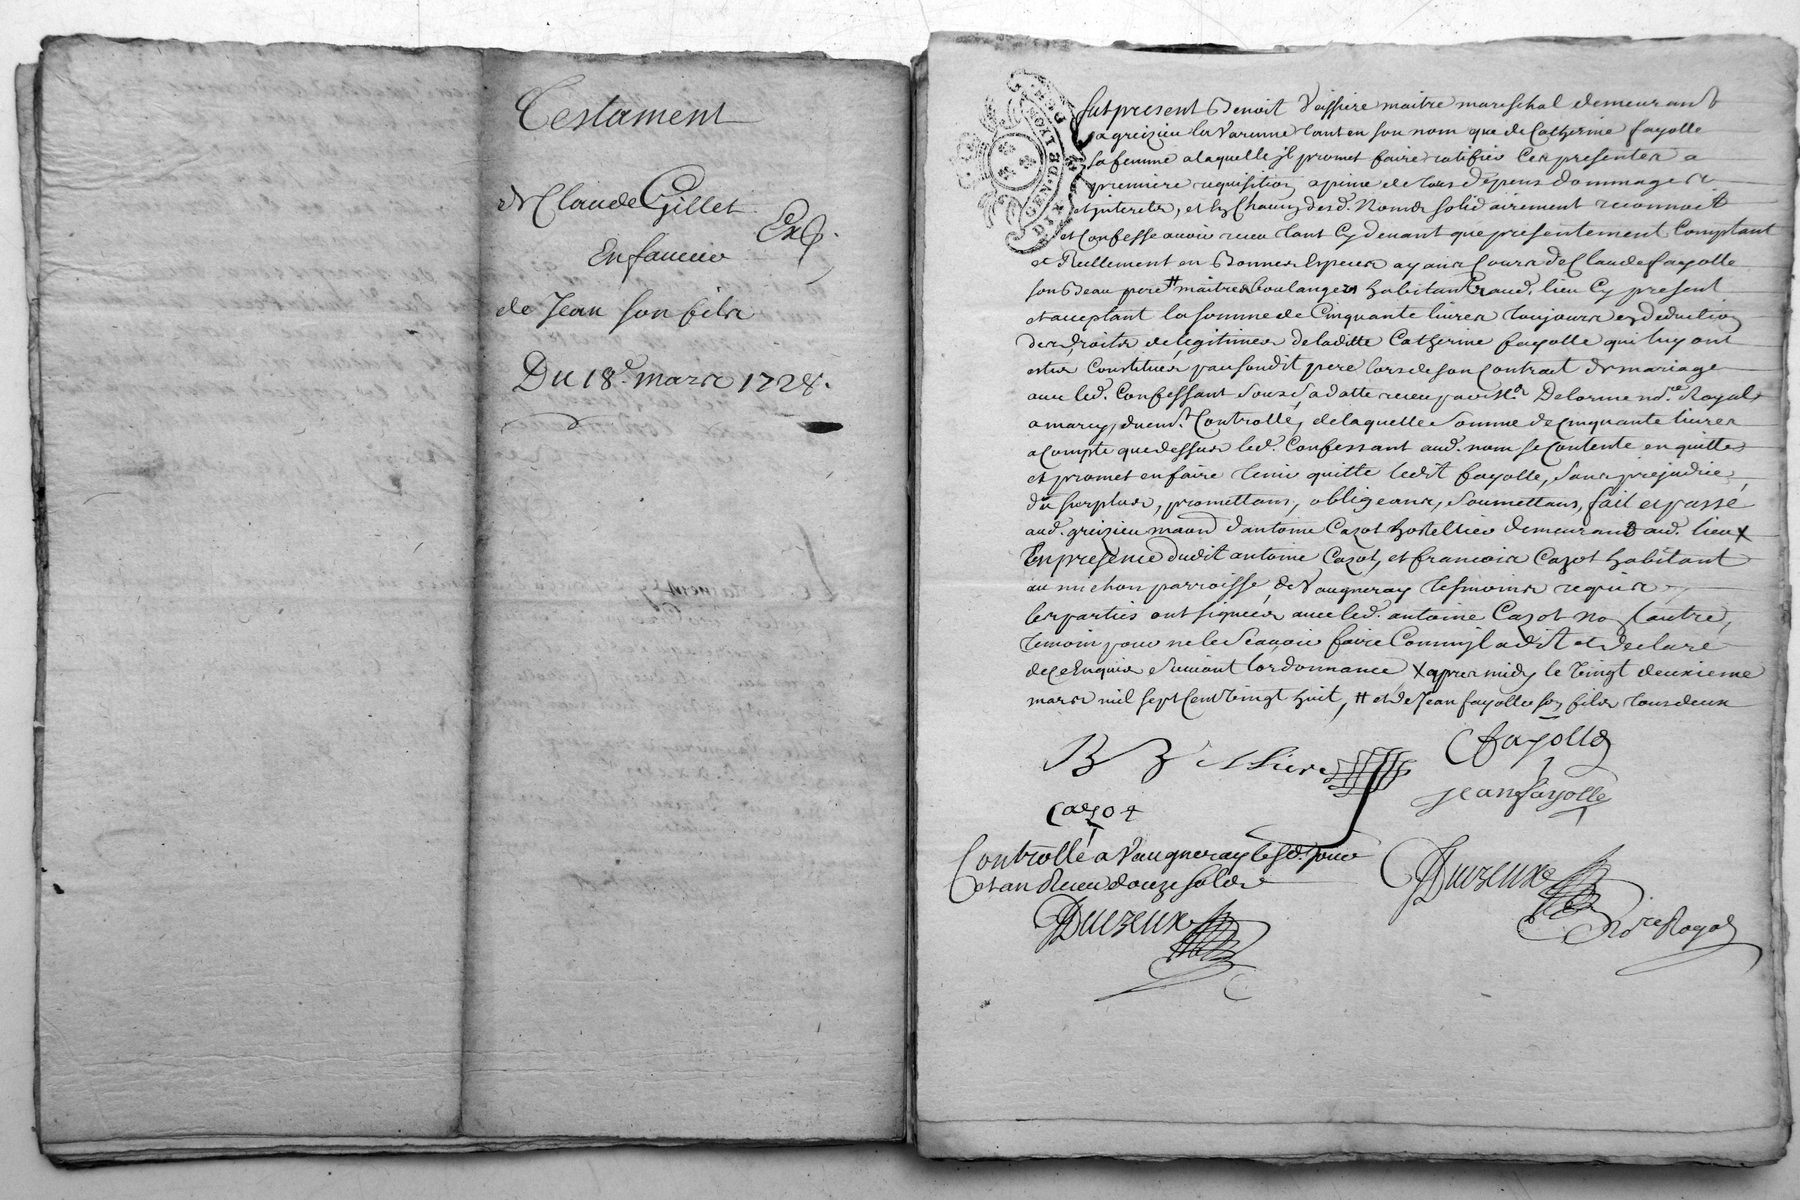 Testament
de Claude Gillet
Exp.
En faveur
de Jean son fils
Du 18e. mars 1728.
GEN. DE LYON
DIX DEN.
fut present Benoit Vaissiere maitre mareschal demeurant
a greizieu la Varenne tant en son nom que de Catherine fayolle
sa femme a laquelle jl promet faire ratifier ces presentes a
premiere requisition a peine de tous depens dommages
et interets, et en Chacun desd. Noms solidairement reconnoit
et Confesse avoir receu tant Cy devant que presentement Comptant
et Reellement en Bonnes Especes ayans Cours de Claude fayolle
son Beau pere # maitres boulangers habitants aud. lieu Cy present
et acceptant la somme de Cinquante livres toujours en deduction
des droits de legitimes de laditte Catherine fayolle qui luy ont
estes Constitues par sondit pere lors de son Contract de mariage
avec led. Confessant sous sa datte receu par Me Delorme nore. Royal
a marcy, duemt. Controllé, de laquelle somme de cinquante livres
a compte que dessus led. Confessant aud. nom se Contente en quitte
et promet en faire tenir quitte ledit fayolle, sans prejudice
du surplus, promettans, obligeans, soumettans, fait et passé
aud. greizieu maison d'antoine Cazot hostellier demeurant aud. lieu X
En presence dudit antoine Cazot, et francois Cazot habitant
au michon parroisse de Vaugneray tesmoins requis
les parties ont signees avec led. antoine Cazot non l'autre
temoin pour ne le scavoir faire Comm'jl a dit et declaré
de ce Enquis suivant l'ordonnance X apres midy le vingt deuxieme
mars mil sept Cent vingt huit, # et de Jean fayolle son fils tous deux
B Vessiere
C fayolle
jean fayolle
Cazot
Controllé a Vaugneray lesd. jour
et an Receu douze sols
Duezeux
Duezeux
Nore Royal